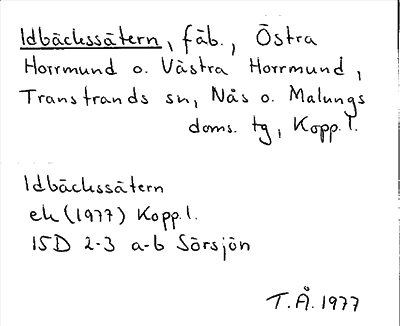 Idbäckssätern, fäb., Östra
Horrmund o. Västra Horrmund,
Transtrands sn, Nås o. Malungs
doms. tg, Kopp.l.
Idbäckssätern
ek (1977) Kopp.l.
15D 2-3 a-b Sörsjön
T.Å. 1977